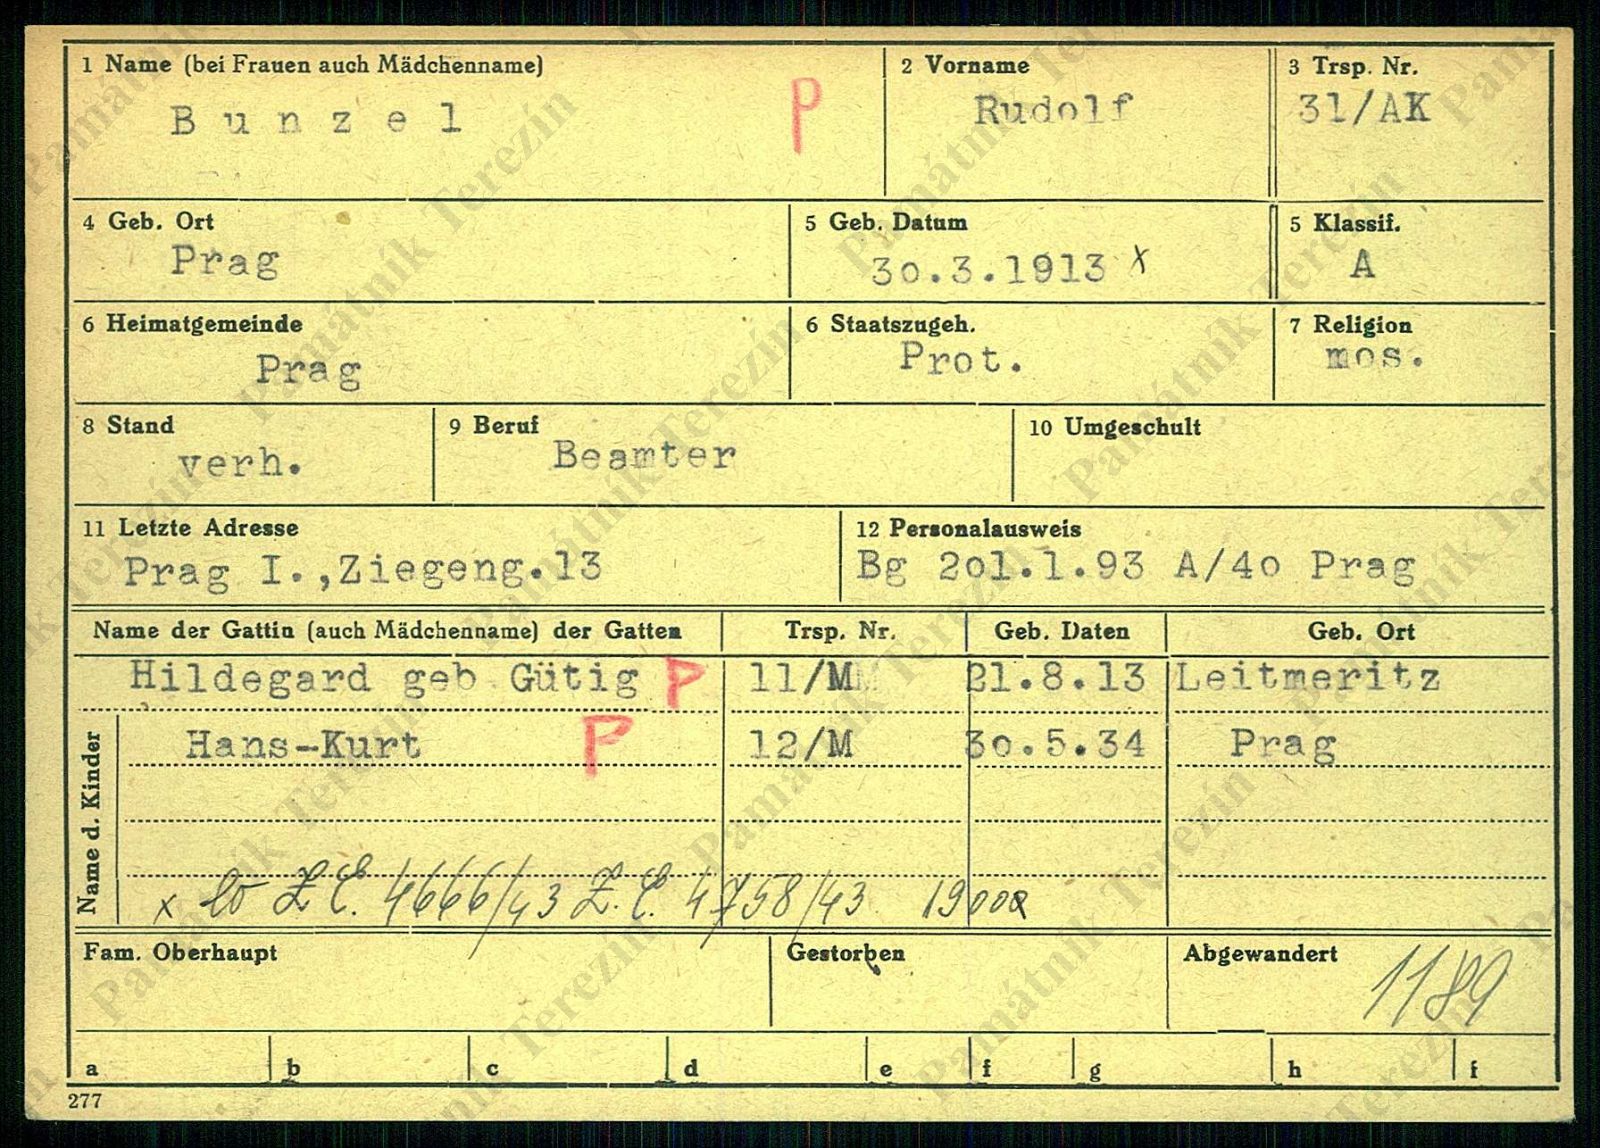 1 Name (bei Frauen auch Mädchenname)
Bunzel
P
2 Vorname
Rudolf
3 Trsp. Nr.
31/AK
4 Geb. Ort
Prag
5 Geb. Datum
30.3.1913 x
5 Klassif.
A
6 Heimatgemeinde
Prag
6 Staatszugeh.
Prot.
7 Religion
mos.
8 Stand
verh.
9 Beruf
Beamter
10 Umgeschult
11 Letzte Adresse
Prag I.,Ziegeng.13
12 Personalausweis
Bg 201.1.93 A/40 Prag
Name der Gattin (auch Mädchenname) der Gatten Trsp. Nr. Geb. Daten Geb. Ort
Hildegard geb Gütig P 11/M 21.8.13 Leitmeritz
Name d. Kinder
Hans-Kurt P 12/M 30.5.34 Prag
x lo Z.E. 4666/43 Z.E. 4758/43 19000
Fam. Oberhaupt
Gestorben
Abgewandert
1189
a b c d e f g h i
277
Památník Terezín